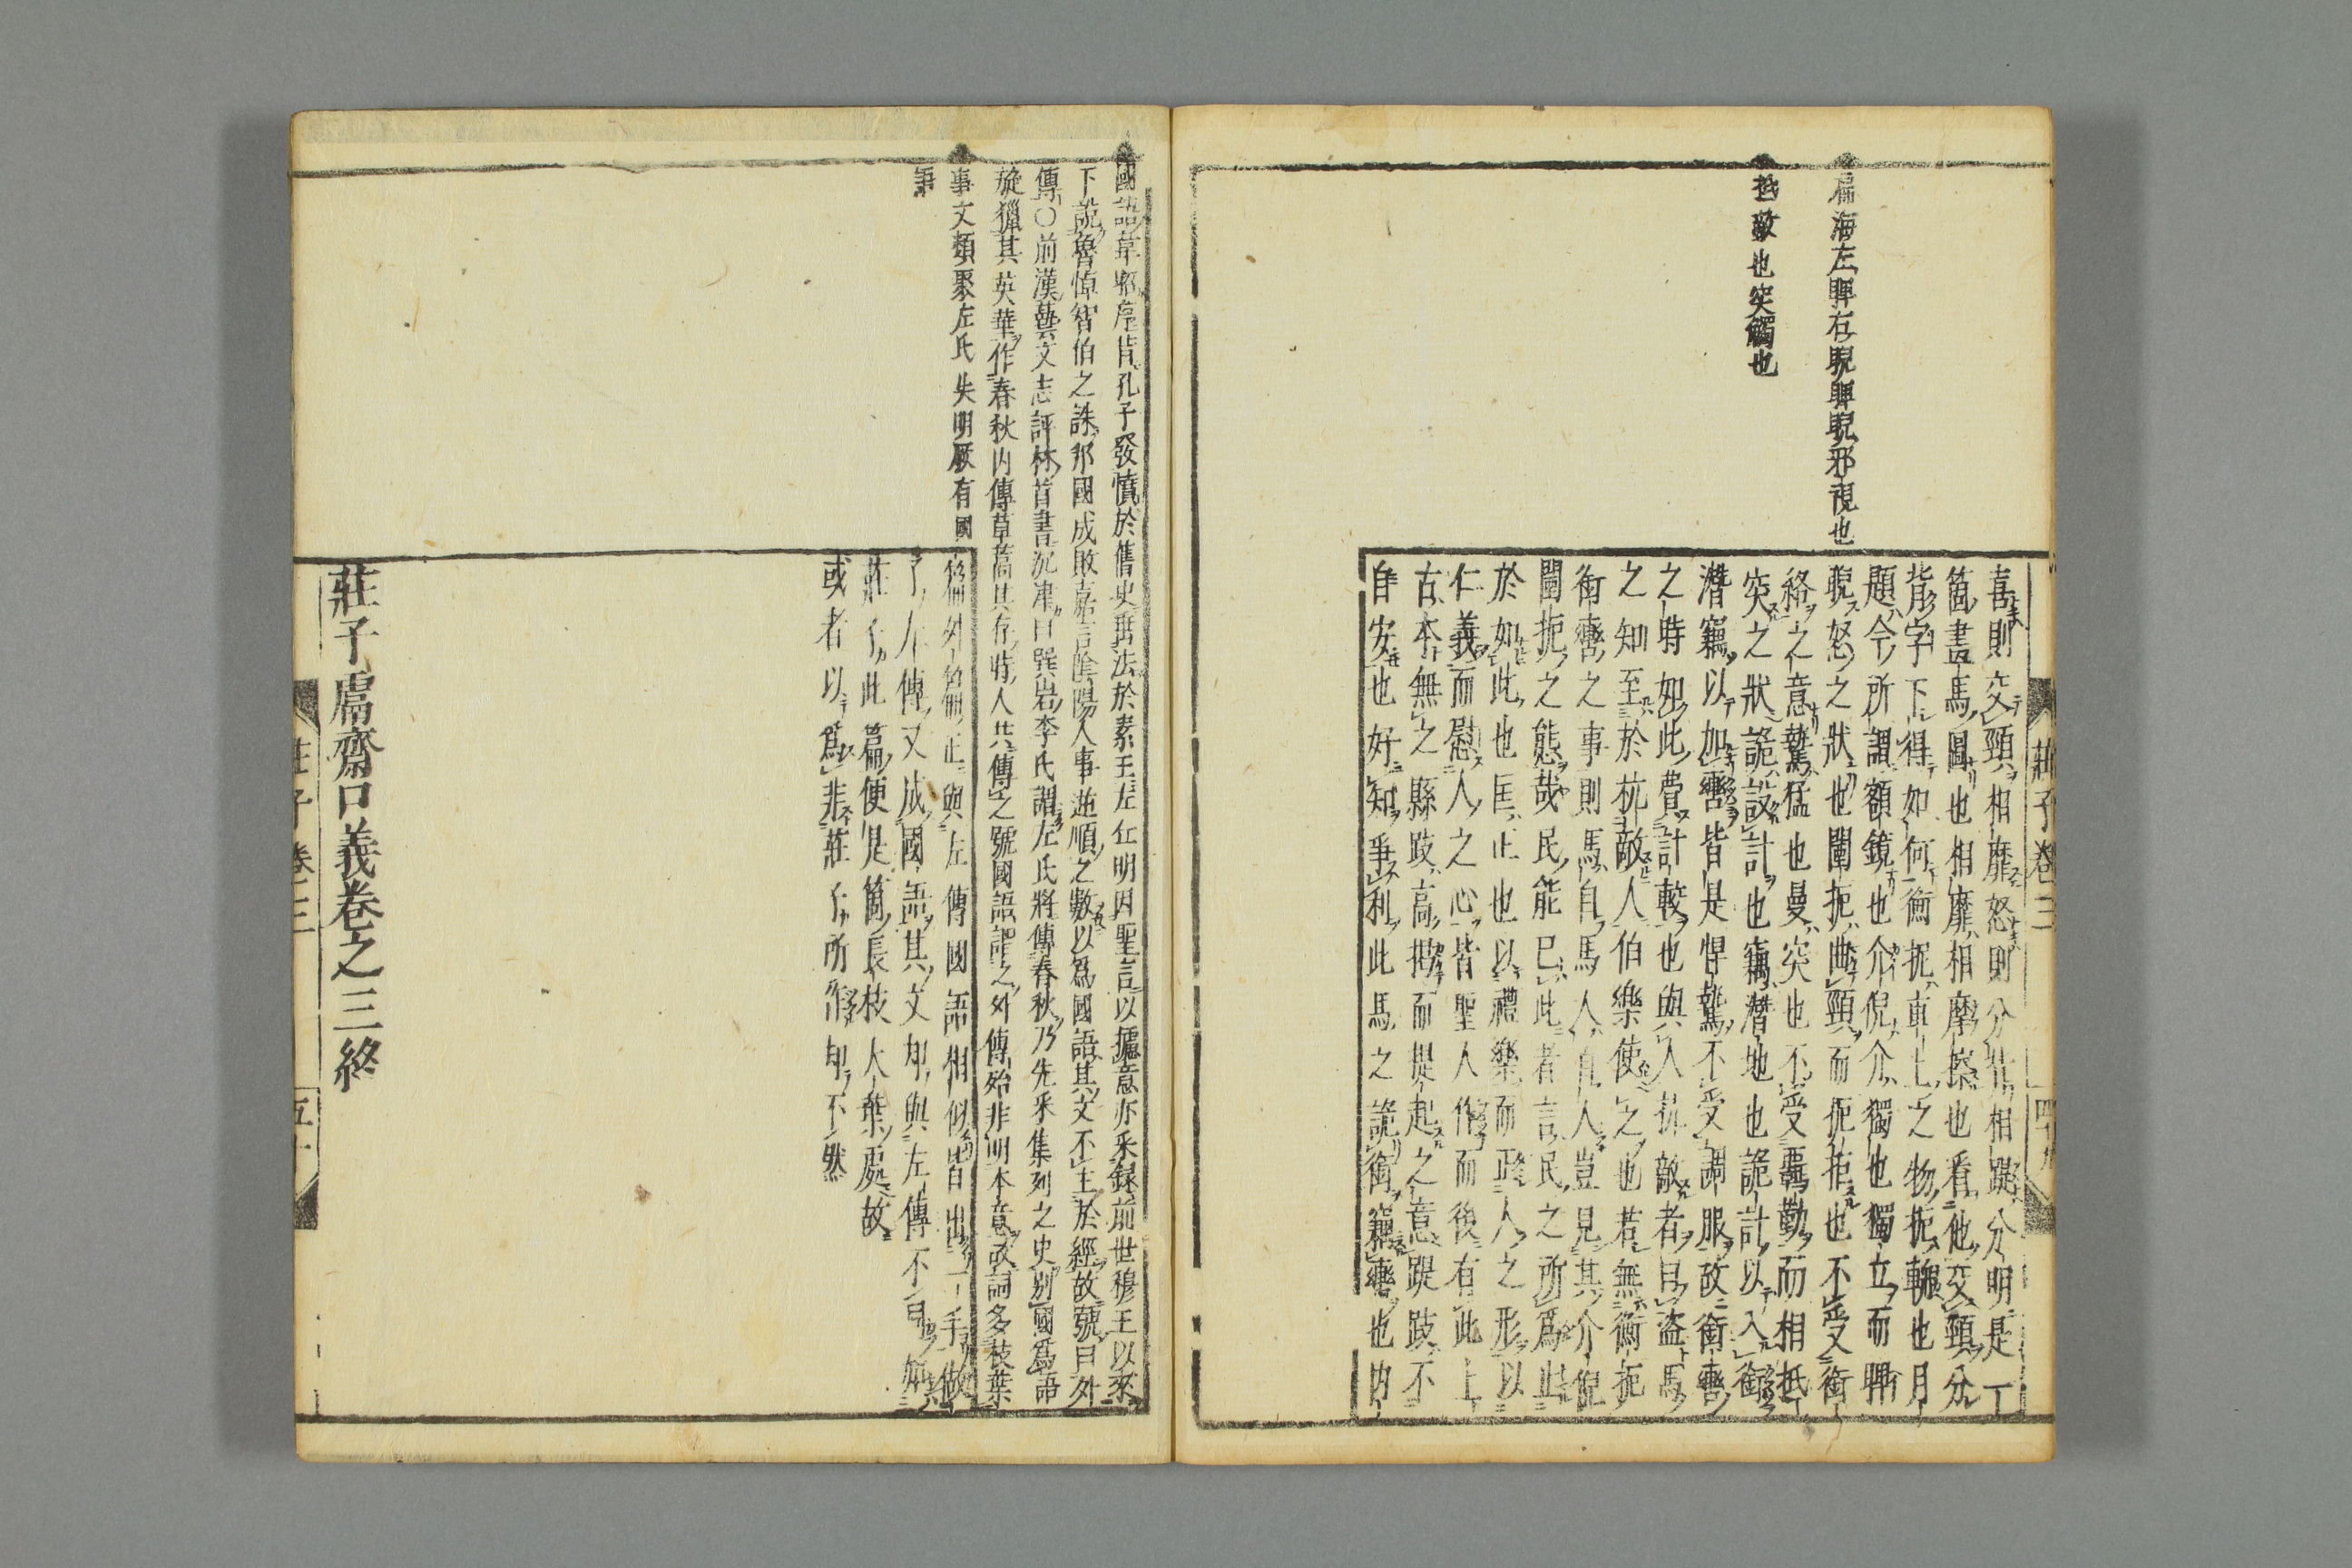 莊子卷三
四十九
篇海左睥右睨睥睨邪視也
抵敵也突觸也
喜則交頸相靡怒則分背相踶分明是一
箇畫馬圖也相靡相摩擦也看他交頸分
背字下得如何衡扼車上之物扼軶也月
題今所謂額鏡也介倪介獨也獨立而睥
睨怒之狀也闉扼曲頸而扼拒也不受銜
絡之意鷙猛也曼突也不受羈勒而相抵
突之狀詭設計也竊潛地也詭計以入銜
潛竊以加轡皆是悍驁不受調服故銜轡
之時如此費計較也與人抗敵者曰盜馬
之知至於抗敵人伯樂使之也若無衡扼
銜轡之事則馬自馬人自人豈見其介倪
闉扼之態哉民能已此者言民之所爲止
於如此也匡正也以禮樂而正人之形以
仁義而慰人之心皆聖人作而後有此上
古本無之縣跂高揭而提起之意踶跂不
自安也好知爭利此馬之詭銜竊轡也內
國語韋昭序昔孔子發憤於舊史垂法於素王左丘明因聖言以攄意亦采錄前世穆王以來
下訖魯悼智伯之誅邦國成敗嘉言陰陽人事逆順之數以爲國語其文不主於經故號曰外
傳〇前漢藝文志評林首書沉津曰巽岩李氏謂左氏將傳春秋乃先采集列之史別國爲語
旋獵其英華作春秋內傳草藁其存時人共傳之號國語謂之外傳殆非明本意故詞多枝葉
事文類聚左氏失明厥有國
語
篇外篇正與左傳國語相似皆出一手做
了左傳又成國語其文却與左傳不同如
莊子此篇便是箇長枝大葉處故
或者以爲非莊子所作却不然
莊子鬳齋口義卷之三終
莊子卷三
五十